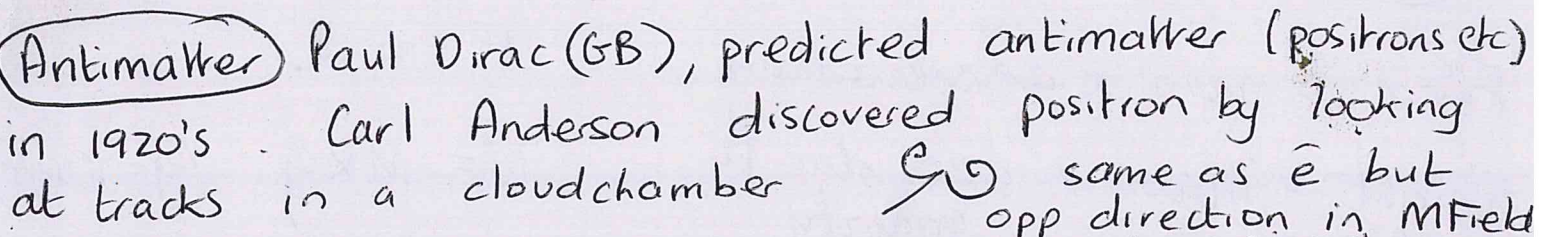 Antimatter Paul Dirac (GB), predicted antimatter (positrons etc)
in 1920's. Carl Anderson discovered positron by looking
at tracks in a cloudchamber same as e̅ but
opp direction in MField